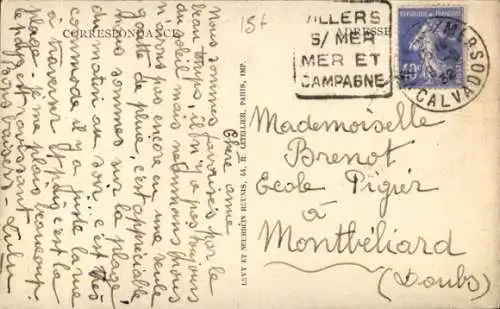 CORRESPONDANCE
15f
Chère amie
Nous sommes favorisés par le
beau temps, il n'y a pas toujours
du soleil mais néanmoins nous
n'avons pas encore eu une seule
goutte de pluie, c'est appréciable
Nous sommes sur la plage,
du matin au soir c'est très
commode il y a juste la rue
à traverser c'est la
plage - je me plais beaucoup
le pays est ravissant
Bons baisers - Lulu
LEVY ET NEURDEIN RÉUNIS, 44, R. LETELLIER, PARIS, IMP.
ADRESSE
VILLERS
S/ MER
MER ET
CAMPAGNE
RÉPUBLIQUE FRANÇAISE
40c
MERS
CALVADOS
Mademoiselle
Brenot
Ecole Pigier
à
Montbéliard
(Doubs)